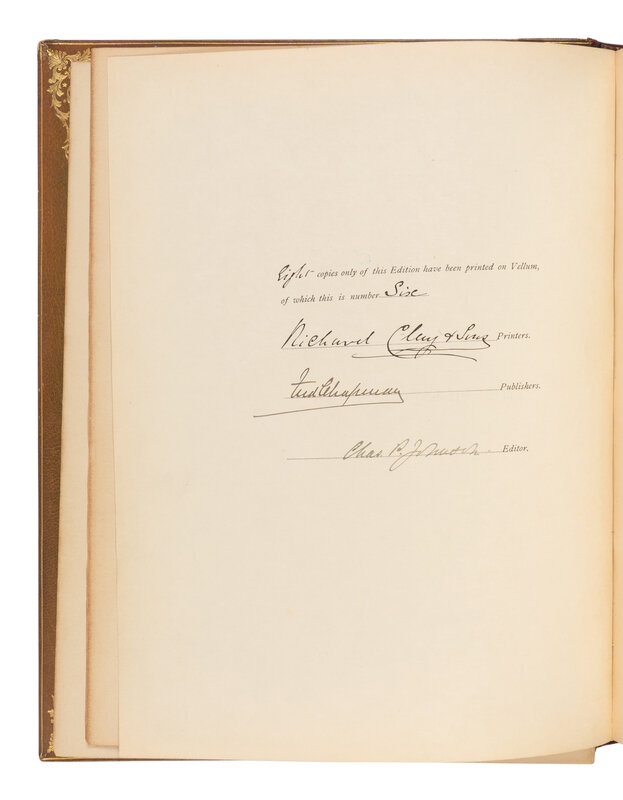 Eight copies only of this Edition have been printed on Vellum,
of which this is number Six
Richard Clay & Sons Printers.
Fred Chapman Publishers.
Chas. P. Johnson. Editor.